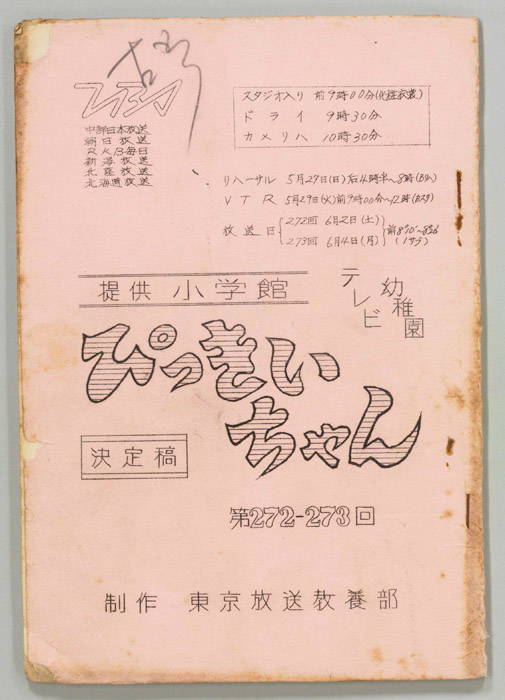 中部日本放送
朝日放送
RKB毎日
新潟放送
北陸放送
北海道放送
スタジオ入り 前9時00分(化粧衣裳)
ドライ 9時30分
カメリハ 10時30分
リハーサル 5月27日(日)后4時半〜8時
VTR 5月29日(火)前9時00分〜12時
放送日 272回 6月2日(土)
273回 6月4日(月)
提供 小学館
テレビ
幼稚園
ぴっきい
ちゃん
決定稿
第272-273回
制作 東京放送教養部